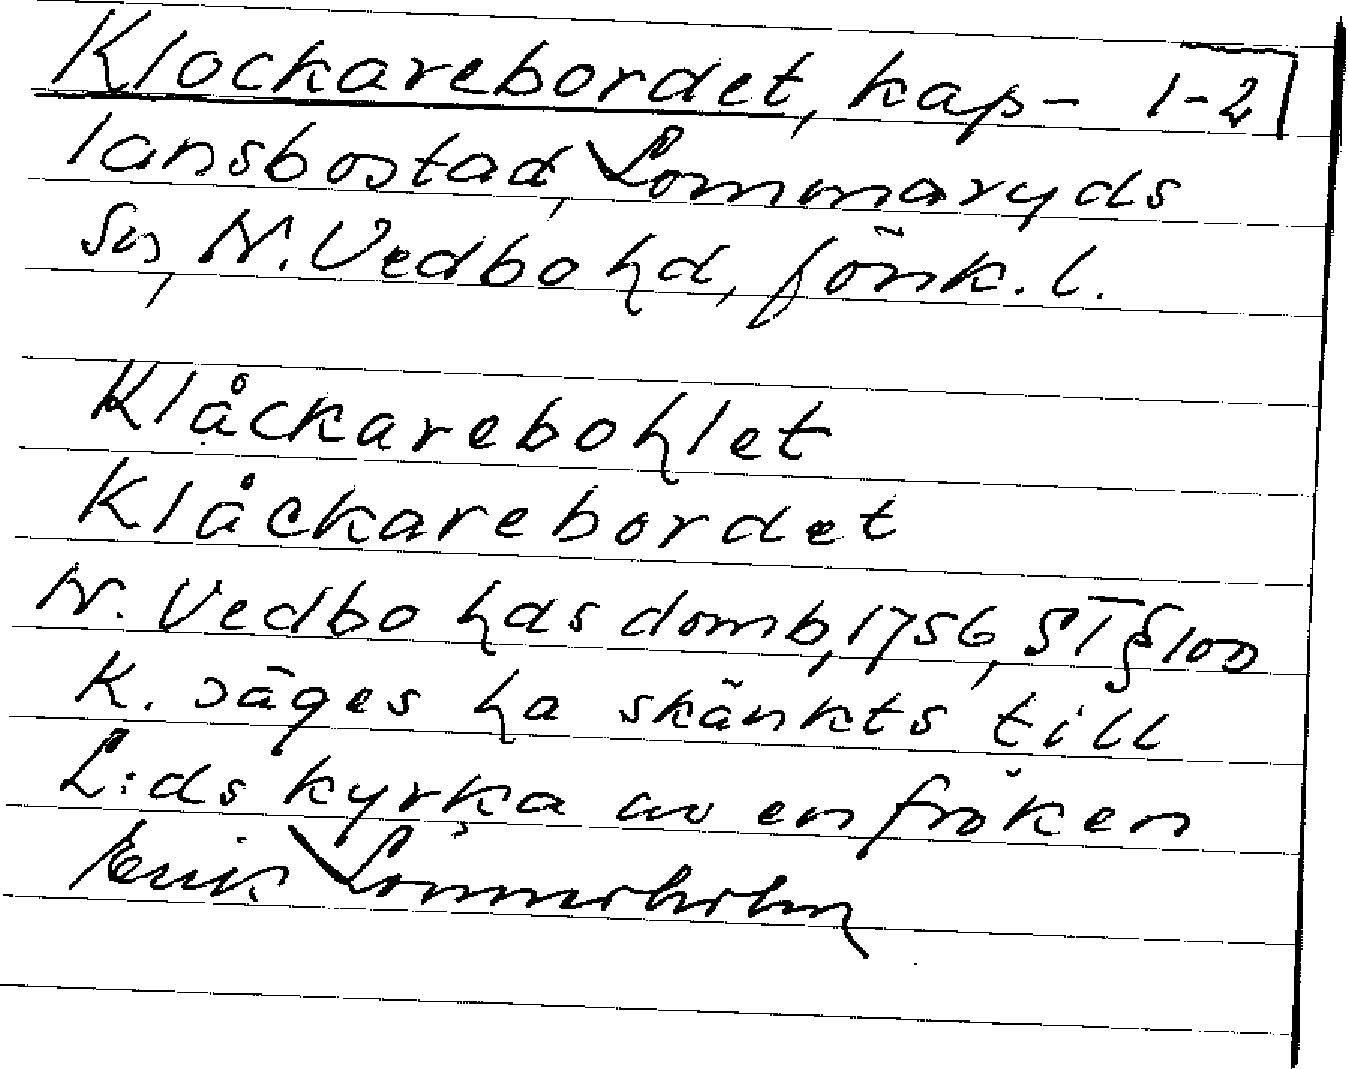 Klockarebordet, kap- 1-2
lansbostad, Lommaryds
sn, N. Vedbo hd, Jönk. l.
Klåckarebohlet
Klåckarebordet
N. Vedbo hds domb, 1756, ST § 100
K. säges ha skänkts till
L:ds kyrka av en fröken
Erik